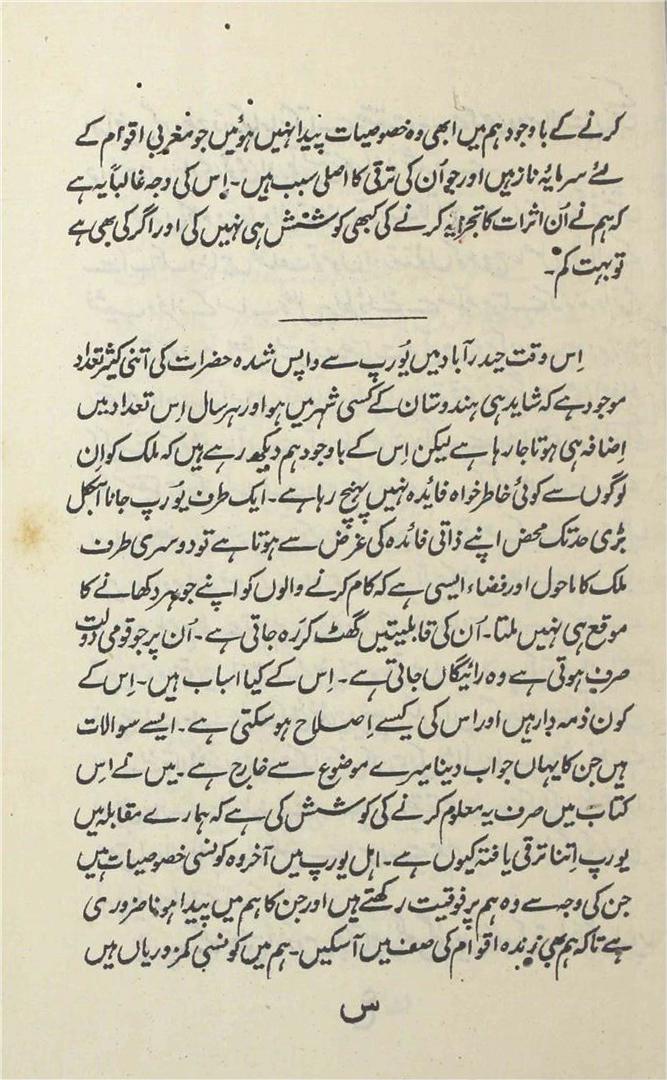 کرنے کے باوجود ہم میں ابھی وہ خصوصیات پیدا نہیں ہوئیں جو مغربی اقوام کے
لئے سرمایۂ ناز ہیں اور جو اُن کی ترقی کا اصلی سبب ہیں۔ اِس کی وجہ غالباً یہ ہے
کہ ہم نے اُن اثرات کا تجزیہ کرنے کی کبھی کوشش ہی نہیں کی اور اگر کی بھی ہے
تو بہت کم۔
اِس وقت حیدرآباد میں یوُرپ سے واپس شدہ حضرات کی اتنی کثیر تعداد
موجود ہے کہ شاید ہی ہندوستان کے کسی شہر میں ہو اور ہر سال اِس تعداد میں
اِضافہ ہی ہوتا جا رہا ہے لیکن اِس کے باوجود ہم دیکھ رہے ہیں کہ ملک کو اِن
لوگوں سے کوئی خاطر خواہ فایٔدہ نہیں پہنچ رہا ہے۔ ایک طرف یوُرپ جانا آجکل
بڑی حد تک محض اپنے ذاتی فائدہ کی غرض سے ہوتا ہے تو دوسری طرف
ملک کا ماحول اور فضاء ایسی ہے کہ کام کرنے والوں کو اپنے جوہر دکھانے کا
موقع ہی نہیں ملتا۔ اُن کی قابلیتیں گھٹ کر رَہ جاتی ہے۔ اُن پر جو قومی دولت
صرف ہوتی ہے وہ رائیگاں جاتی ہے۔ اِس کے کیا اسباب ہیں۔ اِس کے
کون ذمہ دار ہیں اور اس کی کیسے اِصلاح ہو سکتی ہے۔ ایسے سوالات
ہیں جن کا یہاں جواب دینا میرے موضوع سے خارج ہے۔ میں نے اِس
کتاب میں صرف یہ معلوم کرنے کی کوشش کی ہے کہ ہمارے مقابلہ میں
یورپ اِتنا ترقی یافتہ کیوں ہے۔ اہل یورپ میں آخر وہ کونسی خصوصیات ہیں
جن کی وجہ سے وہ ہم پر فوقیت رکھتے ہیں اور جن کا ہم میں پیدا ہونا ضروری
ہے تاکہ ہم بھی زندہ اقوام کی صف میں آسکیں۔ ہم میں کونسی کمزوریاں ہیں
س